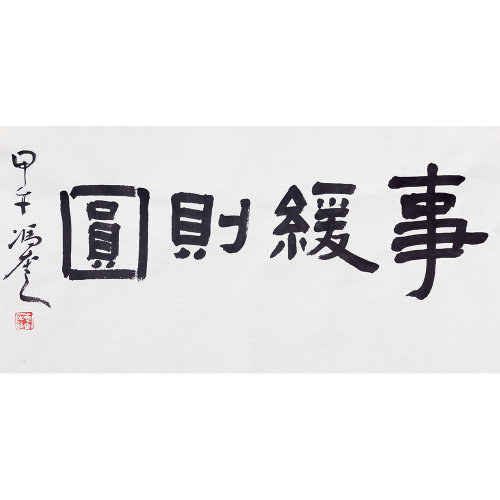 事緩則圓
甲午馮奎